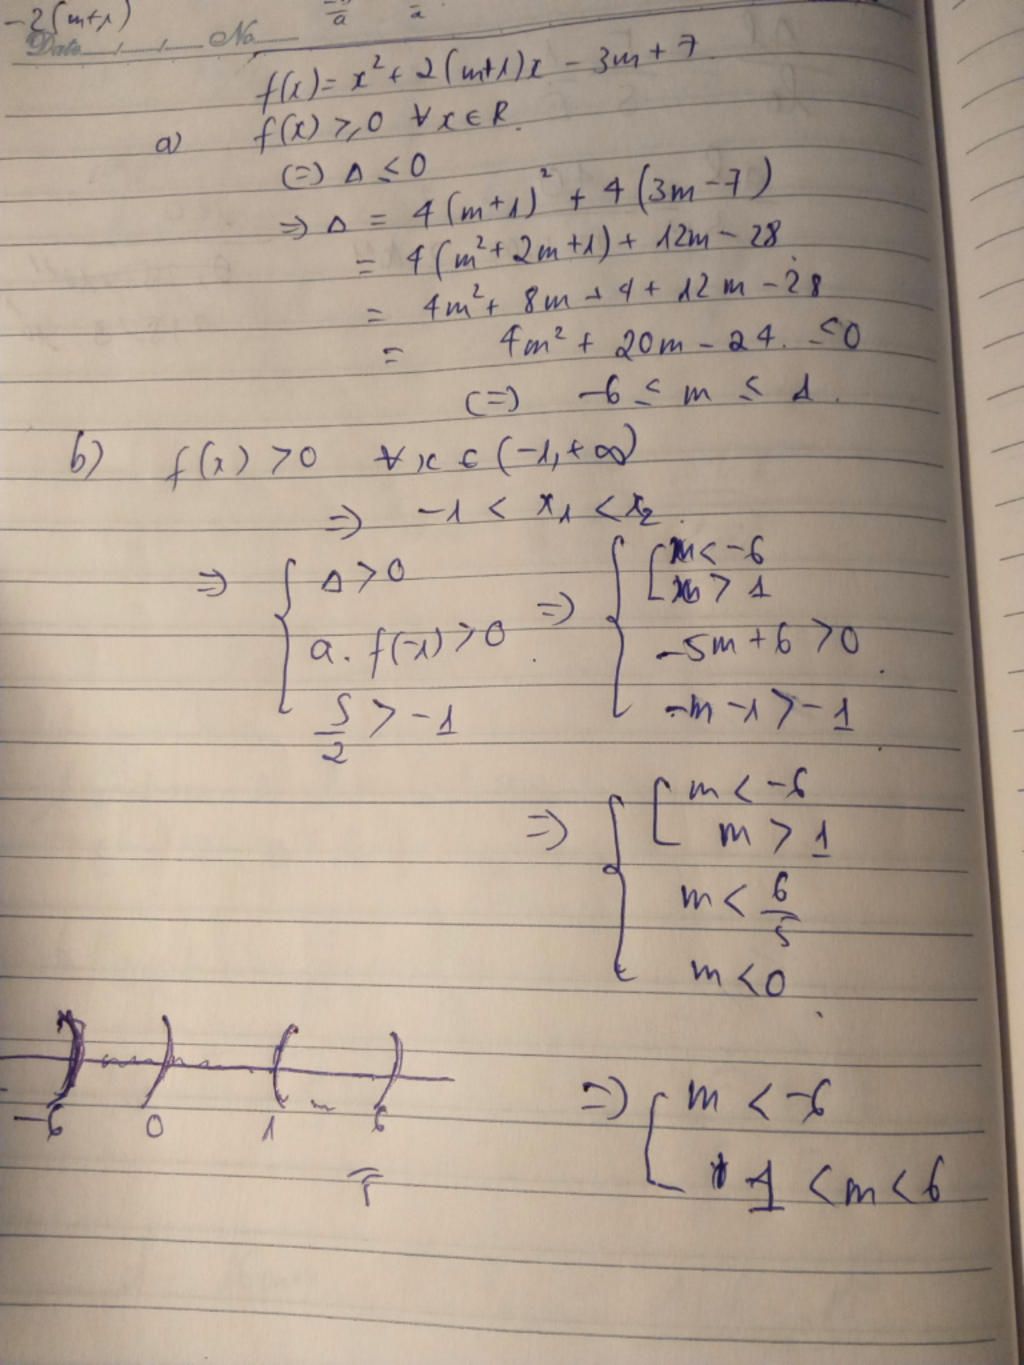 -2(m+1)
Date / / No
a a
f(x) = x² + 2(m+1)x - 3m + 7
a) f(x) ≥ 0 ∀x ∈ R.
(=) Δ ≤ 0
=> Δ = 4(m+1)² + 4(3m-7)
= 4(m² + 2m + 1) + 12m - 28
= 4m² + 8m + 4 + 12m - 28
= 4m² + 20m - 24. ≤ 0
(=) -6 ≤ m ≤ 1.
b) f(x) > 0 ∀x ∈ (-1, +∞)
=> -1 < x₁ < x₂.
=> { Δ > 0 => { [ m < -6
m > 1
a. f(-1) > 0. -5m + 6 > 0
S/2 > -1 -m - 1 > -1
=> { [ m < -6
m > 1
m < 6/5
m < 0
-6 0 1 6/5
=> [ m < -6
1 < m < 6